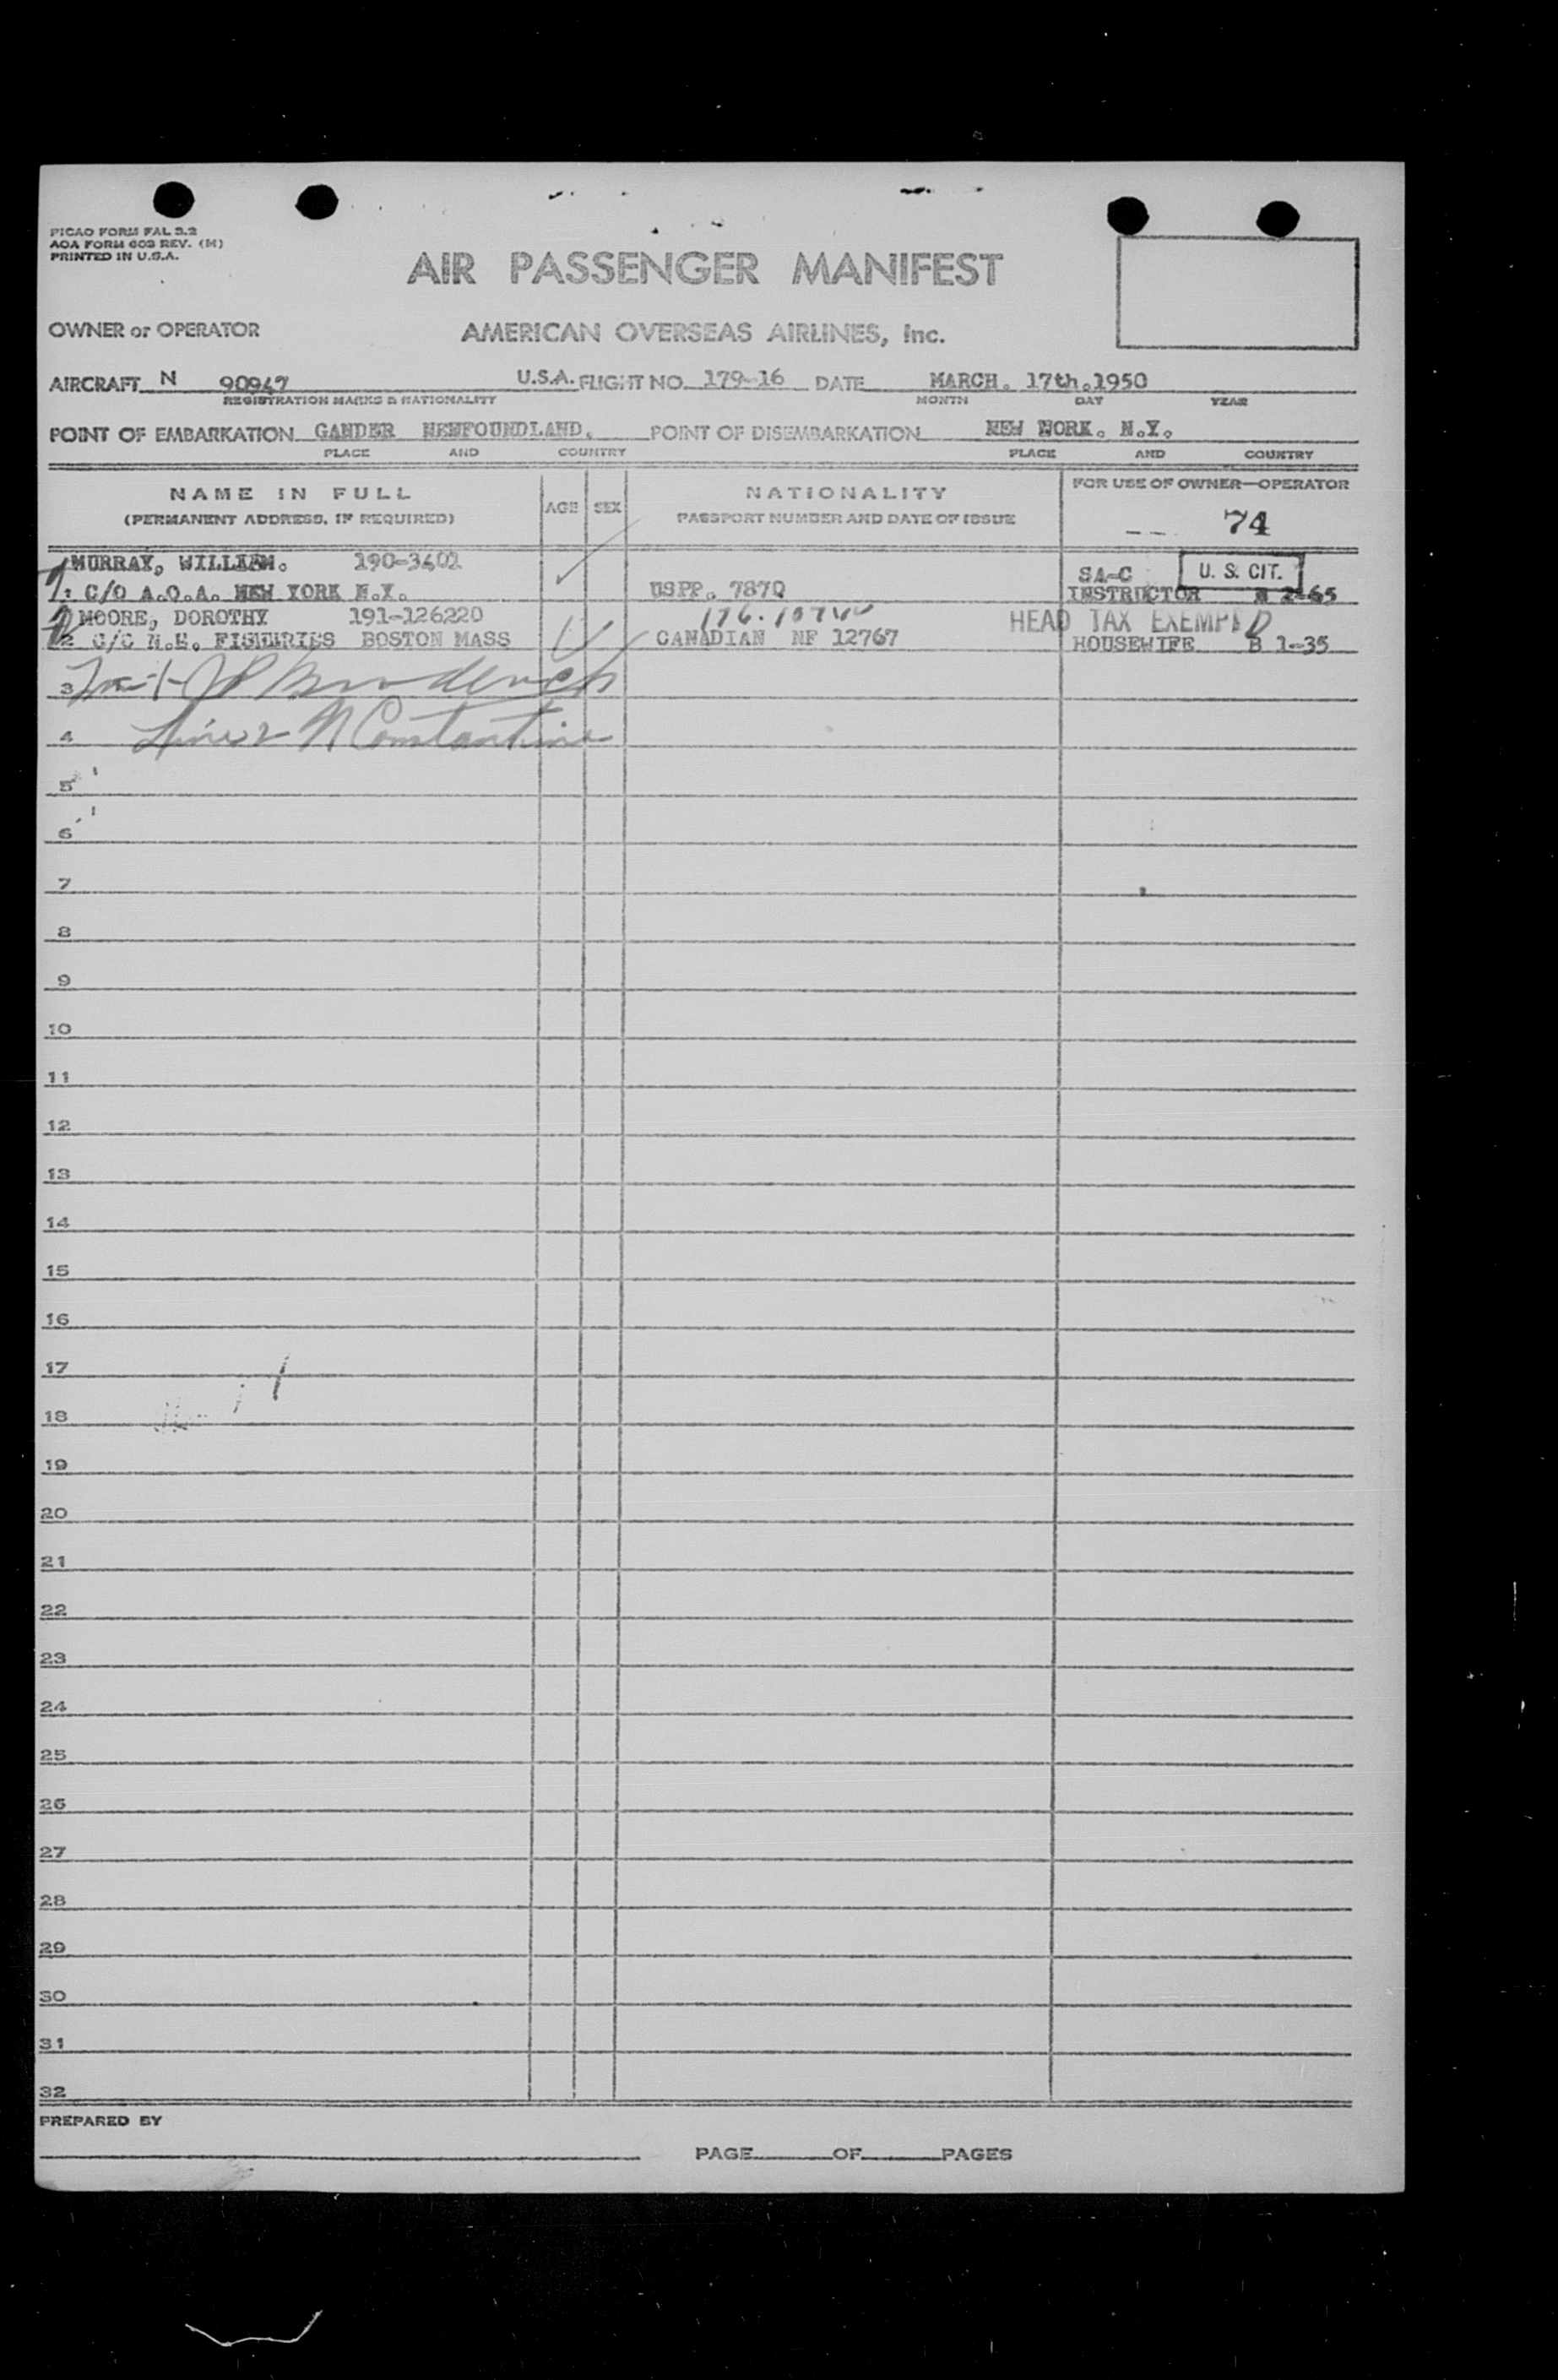 PICAO FORM FAL 3.2
AOA FORM 603 REV. (M)
PRINTED IN U.S.A.
AIR PASSENGER MANIFEST
OWNER or OPERATOR AMERICAN OVERSEAS AIRLINES, Inc.
AIRCRAFT N 90947 U.S.A. FLIGHT NO. 179-16 DATE MARCH. 17th.1950
REGISTRATION MARKS & NATIONALITY MONTH DAY YEAR
POINT OF EMBARKATION GANDER NEWFOUNDLAND. POINT OF DISEMBARKATION NEW YORK. N.Y.
PLACE AND COUNTRY PLACE AND COUNTRY
NAME IN FULL AGE SEX NATIONALITY FOR USE OF OWNER—OPERATOR
(PERMANENT ADDRESS, IF REQUIRED) PASSPORT NUMBER AND DATE OF ISSUE 74
MURRAY, WILLIAM. 190-3401 SA-C U. S. CIT.
1. C/O A.O.A. NEW YORK N.Y. USPP. 787Q INSTRUCTOR 2-65
MOORE, DOROTHY 191-126220 HEAD TAX EXEMPT
2 C/C N.E. FISHERIES BOSTON MASS CANADIAN NF 12767 HOUSEWIFE B 1-35
3
4 Constantine
5
6
7
8
9
10
11
12
13
14
15
16
17
18
19
20
21
22
23
24
25
26
27
28
29
30
31
32
PREPARED BY
PAGE OF PAGES